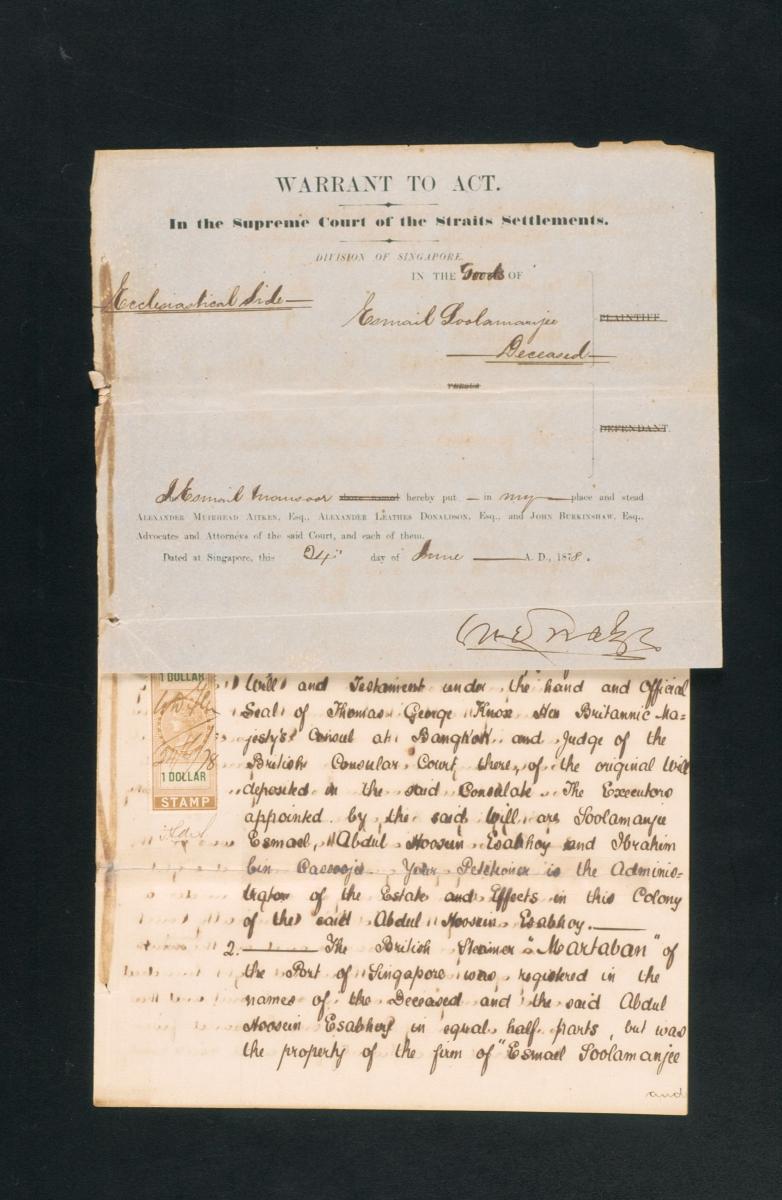 WARRANT TO ACT.
In the Supreme Court of the Straits Settlements.
DIVISION OF SINGAPORE.
IN THE Goods OF
Ecclesiastical Side
Esmail Soolamanjee
PLAINTIFF
Deceased
VERSUS
DEFENDANT.
I Esmail Mansoor above-named hereby put in my place and stead
ALEXANDER MUIRHEAD AITKEN, Esq., ALEXANDER LEATHES DONALDSON, Esq., and JOHN BURKINSHAW, Esq.,
Advocates and Attorneys of the said Court, and each of them.
Dated at Singapore, this 24th day of June A. D., 1878.
1 DOLLAR
1 DOLLAR
STAMP
Will and Testament under the hand and Official
Seal of Thomas George Knox Her Britannic Ma-
jesty's Consul at Bangkok and Judge of the
British Consular Court there, of the original Will
deposited in the said Consulate. The Executors
appointed by the said Will are Soolamanjee
Esmael, Abdul Hoosein Esabhoy and Ibrahim
bin Your Petitioner is the Adminis-
trator of the Estate and Effects in this Colony
of the said Abdul Hoosein Esabhoy.
2. The British Steamer "Martaban" of
the Port of Singapore was registered in the
names of the Deceased and the said Abdul
Hoosein Esabhoy in equal half parts, but was
the property of the firm of "Esmael Soolamanjee
and